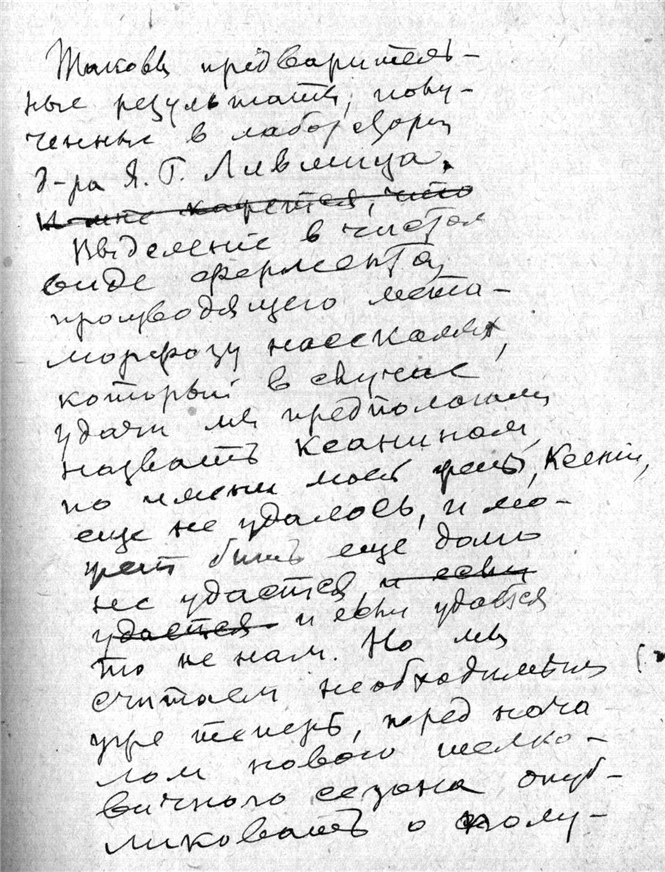 Таковы предваритель-
ные результаты, полу-
ченные в лаборатории
д-ра Я. Г. Лившица.
И мне кажется, что
Выделение в чистом
виде фермента,
производящего мета-
морфозу насекомых,
который в случае
удачи мы предполагали
назвать Ксанином,
по имени моей
еще не удалось, и мо-
жет быть еще долго
не удастся и если
удастся и если удастся
то не нам. Но мы
считаем необходимым
уже теперь, перед нача-
лом нового шелко-
вичного сезона опуб-
ликовать о полу-